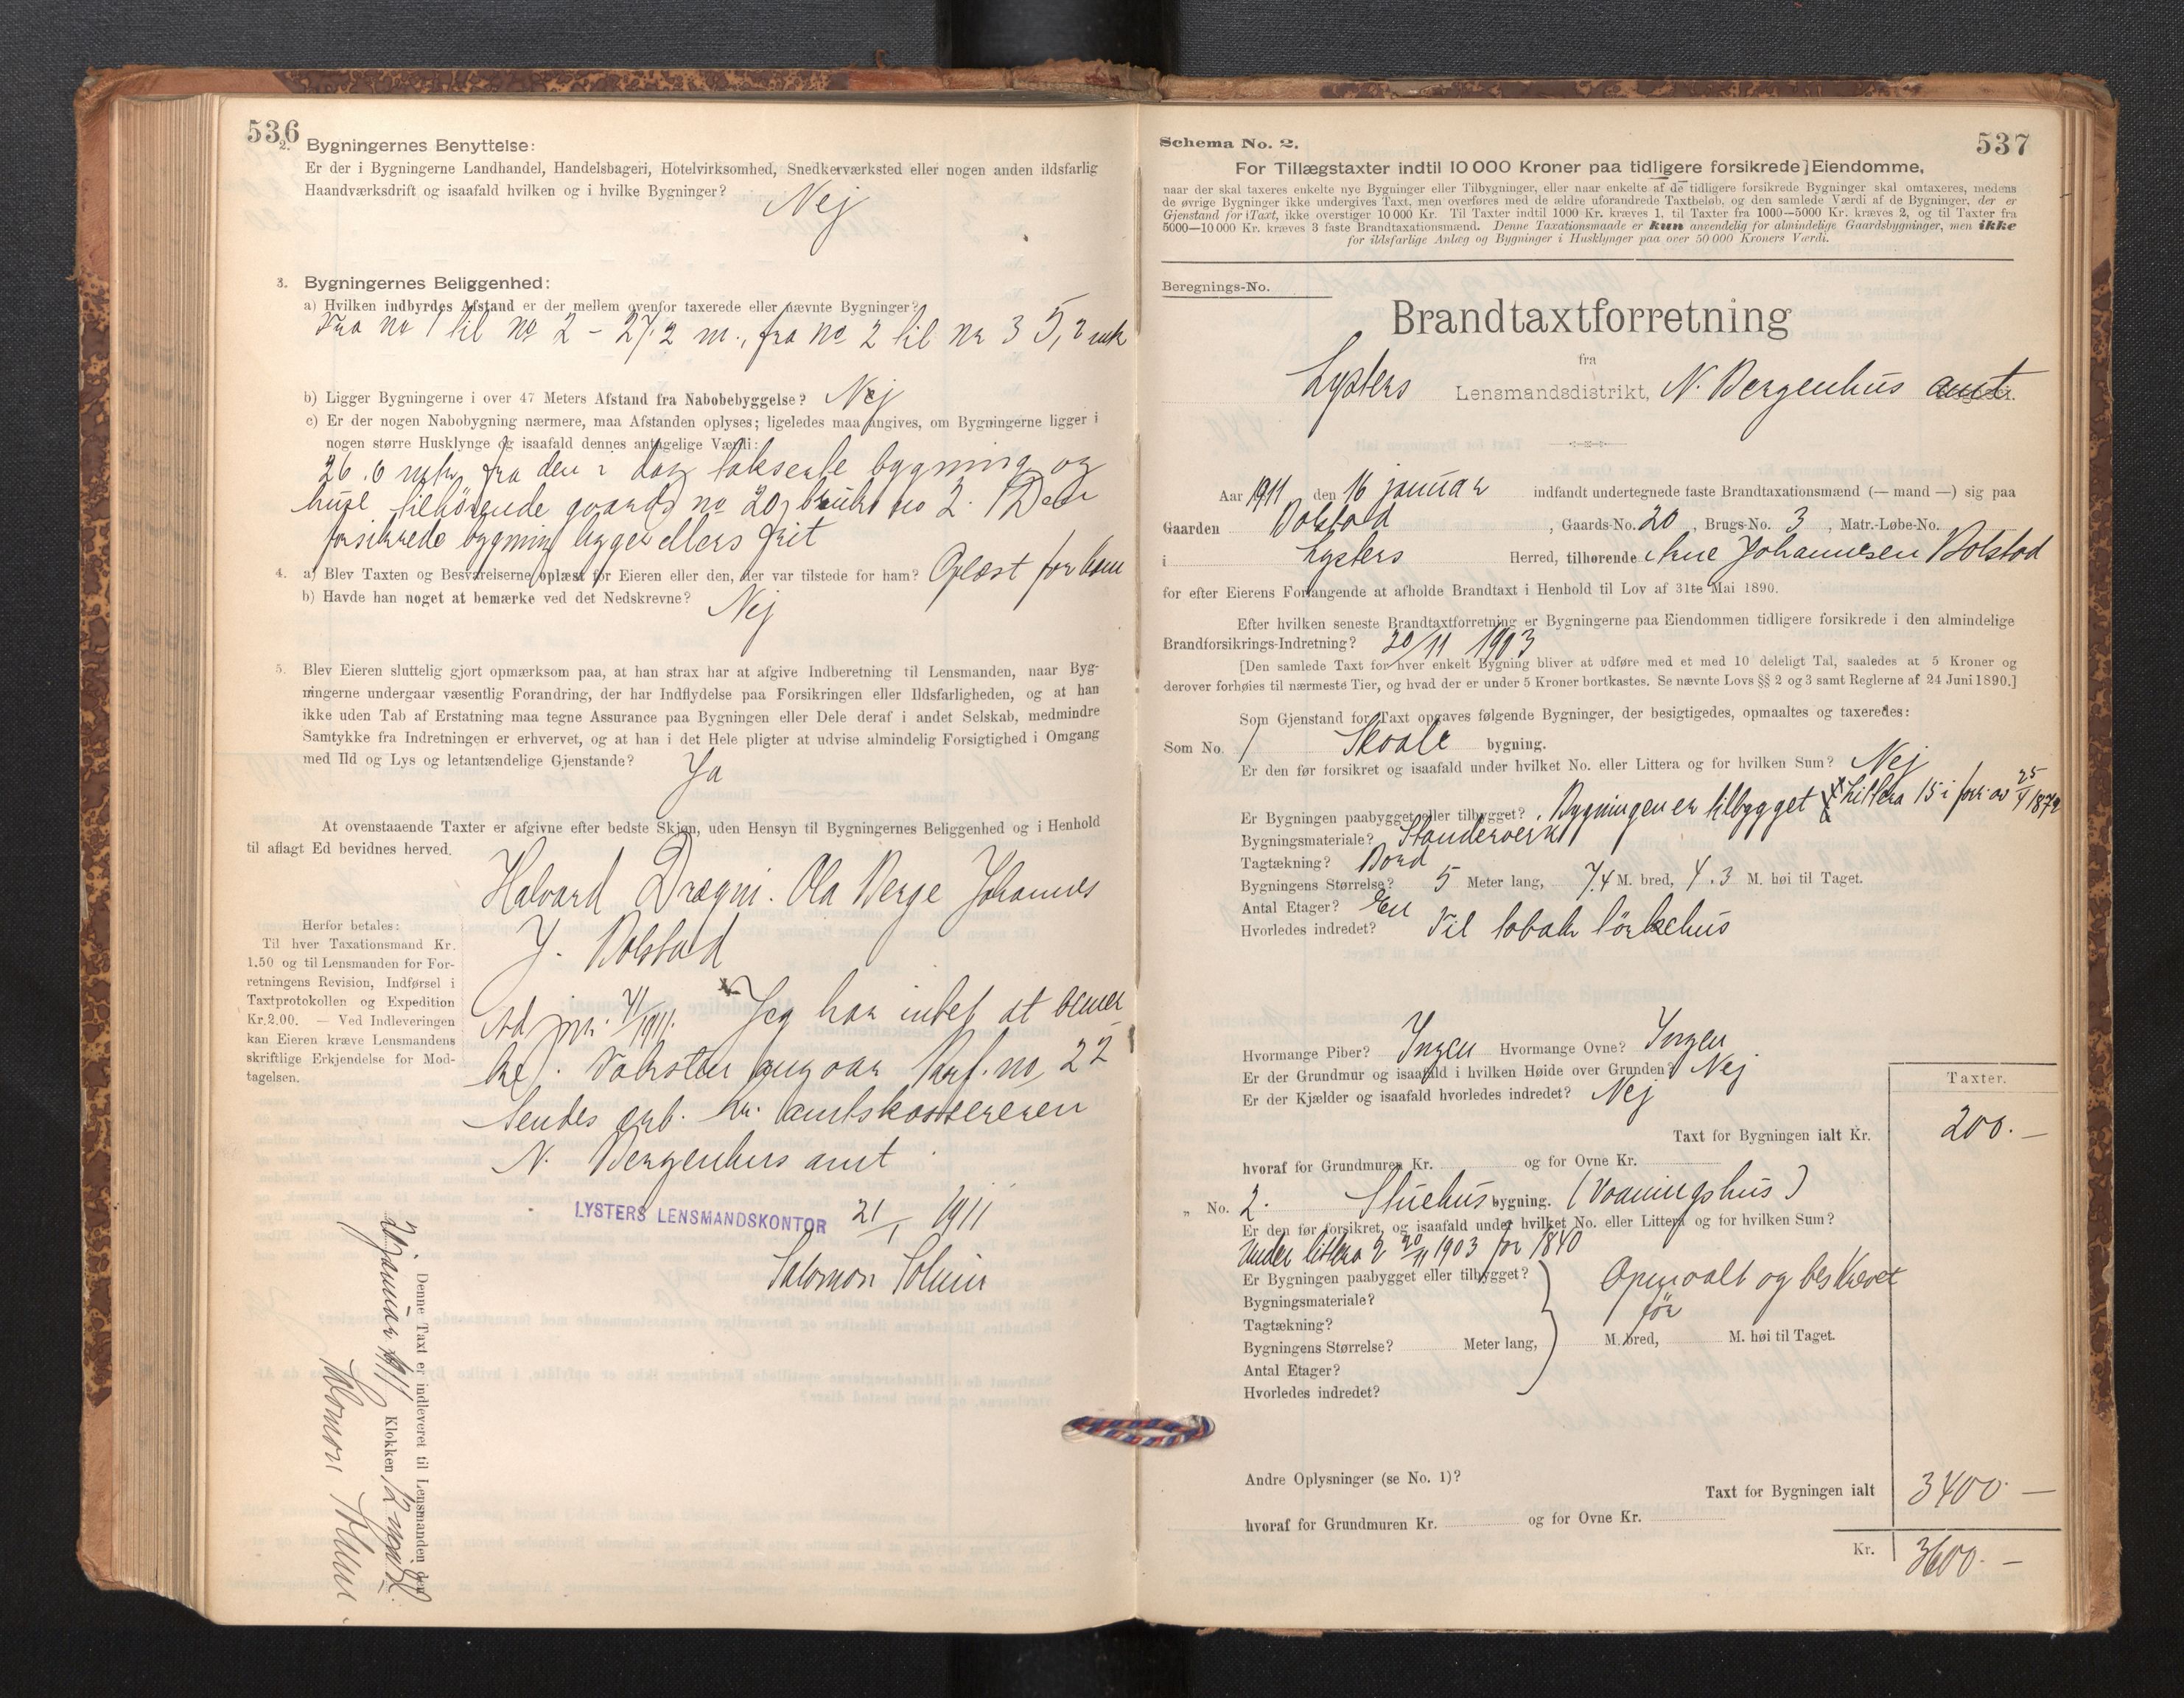 536
2. Bygningernes Benyttelse:
Er der i Bygningerne Landhandel, Handelsbageri, Hotelvirksomhed, Snedkerværksted eller nogen anden ildsfarlig
Haandværksdrift og isaafald hvilken og i hvilke Bygninger? Nej
3. Bygningernes Beliggenhed:
a) Hvilken indbyrdes Afstand er der mellem ovenfor taxerede eller nævnte Bygninger?
Fra no 1 til no 2 - 27.2 m., fra no 2 til no 3 5,2 mtr
b) Ligger Bygningerne i over 47 Meters Afstand fra Nabobebyggelse? Nej
c) Er der nogen Nabobygning nærmere, maa Afstanden oplyses; ligeledes maa angives, om Bygningerne ligger i
nogen større Husklynge og isaafald dennes antagelige Værdi:
26.0 mtr fra den i dag takserte bygning og
huse tilhörende gaards no 20, bruks no 2. Den
forsikrede bygning ligger ellers frit
4. a) Blev Taxten og Besvarelserne oplæst for Eieren eller den, der var tilstede for ham? Oplæst for ham
b) Havde han noget at bemærke ved det Nedskrevne? Nej
5. Blev Eieren sluttelig gjort opmærksom paa, at han strax har at afgive Indberetning til Lensmanden, naar Byg-
ningerne undergaar væsentlig Forandring, der har Indflydelse paa Forsikringen eller Ildsfarligheden, og at han
ikke uden Tab af Erstatning maa tegne Assurance paa Bygningen eller Dele deraf i andet Selskab, medmindre
Samtykke fra Indretningen er erhvervet, og at han i det Hele pligter at udvise almindelig Forsigtighed i Omgang
med Ild og Lys og letantændelige Gjenstande? Ja
At ovenstaaende Taxter er afgivne efter bedste Skjøn, uden Hensyn til Bygningernes Beliggenhed og i Henhold
til aflagt Ed bevidnes herved.
Halvard Drægni. Ola Berge Johannes
J. Bolstad
Herfor betales:
Til hver Taxationsmand Kr.
1.50 og til Lensmanden for For-
retningens Revision, Indførsel i
Taxtprotokollen og Expedition
Kr. 2.00. — Ved Indleveringen
kan Eieren kræve Lensmandens
skriftlige Erkjendelse for Mod-
tagelsen.
1911. Jeg har intet at bemer
ke. no 22
Sendes ærb. hr. amtskassereren
N. Bergenhus amt
LYSTERS LENSMANDSKONTOR 21/1 1911
Salomon
Denne Taxt er indleveret til Lensmanden den
januar 1911 Klokken 12 midd.
Salomon
537
Schema No. 2.
For Tillægstaxter indtil 10 000 Kroner paa tidligere forsikrede] Eiendomme,
naar der skal taxeres enkelte nye Bygninger eller Tilbygninger, eller naar enkelte af de tidligere forsikrede Bygninger skal omtaxeres, medens
de øvrige Bygninger ikke undergives Taxt, men overføres med de ældre uforandrede Taxtbeløb, og den samlede Værdi af de Bygninger, der er
Gjenstand for iTaxt, ikke overstiger 10 000 Kr. Til Taxter indtil 1000 Kr. kræves 1, til Taxter fra 1000—5000 Kr. kræves 2, og til Taxter fra
5000—10 000 Kr. kræves 3 faste Brandtaxationsmænd. Denne Taxationsmaade er kun anvendelig for almindelige Gaardsbygninger, men ikke
for ildsfarlige Anlæg og Bygninger i Husklynger paa over 50 000 Kroners Værdi.
Beregnings-No.
Brandtaxtforretning
fra
Lysters Lensmandsdistrikt, N. Bergenhus amt
Aar 1911 den 16 januar indfandt undertegnede faste Brandtaxationsmænd (— mand —) sig paa
Gaarden Bolstad, Gaards-No. 20, Brugs-No. 3, Matr.-Løbe-No.
i Lysters Herred, tilhørende Arne Johannesen Bolstad
for efter Eierens Forlangende at afholde Brandtaxt i Henhold til Lov af 31te Mai 1890.
Efter hvilken seneste Brandtaxtforretning er Bygningerne paa Eiendommen tidligere forsikrede i den almindelige
Brandforsikrings-Indretning? 20/11 1903
[Den samlede Taxt for hver enkelt Bygning bliver at udføre med et med 10 deleligt Tal, saaledes at 5 Kroner og
derover forhøies til nærmeste Tier, og hvad der er under 5 Kroner bortkastes. Se nævnte Lovs §§ 2 og 3 samt Reglerne af 24 Juni 1890.]
Som Gjenstand for Taxt opgaves følgende Bygninger, der besigtigedes, opmaaltes og taxeredes:
Som No. 1 Skaale bygning.
Er den før forsikret og isaafald under hvilket No. eller Littera og for hvilken Sum? Nej
Er Bygningen paabygget eller tilbygget? Bygningen er tilbygget littera 15 i forr. av 25/4 1872
Bygningsmateriale? Standerverk
Tagtækning? Bord
Bygningens Størrelse? 5 Meter lang, 7.4 M. bred, 4.3 M. høi til Taget.
Antal Etager? En
Hvorledes indredet? Til tobak törkehus
Hvormange Piber? Ingen Hvormange Ovne? Ingen
Er der Grundmur og isaafald i hvilken Høide over Grunden? Nej
Er der Kjælder og isaafald hvorledes indredet? Nej
Taxter.
Taxt for Bygningen ialt Kr. 200.—
hvoraf for Grundmuren Kr. og for Ovne Kr.
" No. 2. Stuehus bygning. (Vaaningshus)
Er den før forsikret, og isaafald under hvilket No. eller Littera og for hvilken Sum?
Under littera 2 20/11 1903 for 1840
Er Bygningen paabygget eller tilbygget? Opmaalt og beskrevet
Bygningsmateriale? før
Tagtækning?
Bygningens Størrelse? Meter lang, M. bred, M. høi til Taget.
Antal Etager?
Hvorledes indredet?
Andre Oplysninger (se No. 1)?
Taxt for Bygningen ialt 3400.—
hvoraf for Grundmuren Kr. og for Ovne Kr.
Kr. 3600.—